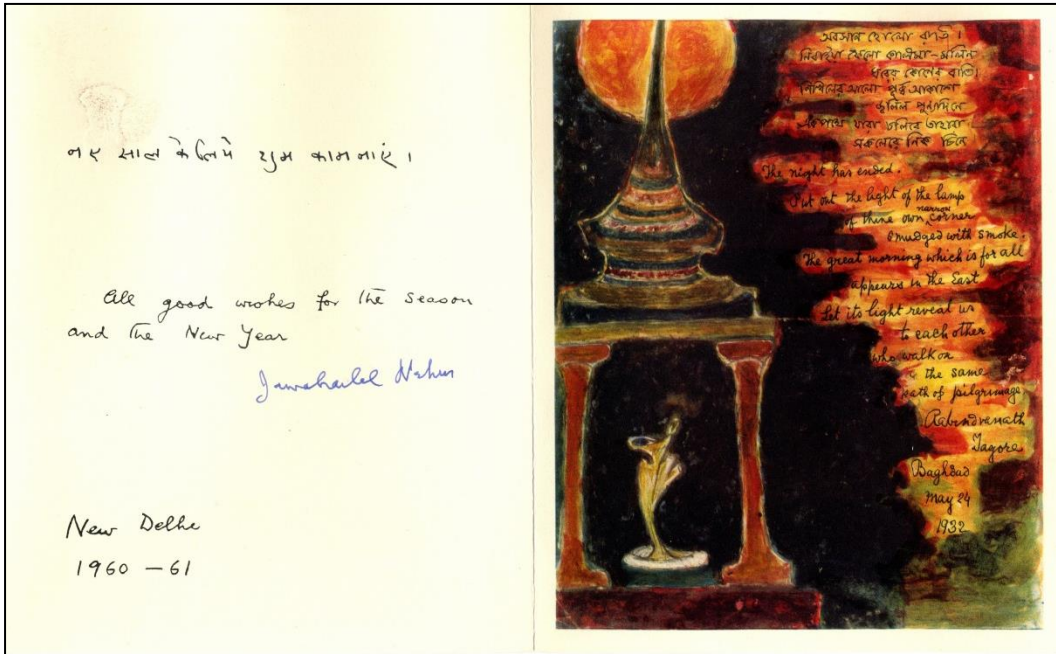 नए साल के लिये शुभ कामनाएं ।
All good wishes for the season
and the New Year
Jawaharlal Nehru
New Delhi
1960 - 61
অবসান হোলো রাতি ।
নিবাইয়া ফেলো কালিমা-মলিন
ঘরের কোণের বাতি।
নিখিলের আলো পূর্ব্ব আকাশে
জ্বলিল পুণ্যদিনে
একপথে যারা চলিবে তাহারা
সকলেরে নিক্ চিনে
The night has ended.
Put out the light of the lamp
of thine own narrow corner
smudged with smoke.
The great morning which is for all
appears in the East
Let its light reveal us
to each other
who walk on
the same
path of pilgrimage
Rabindranath
Tagore
Baghdad
May 24
1932